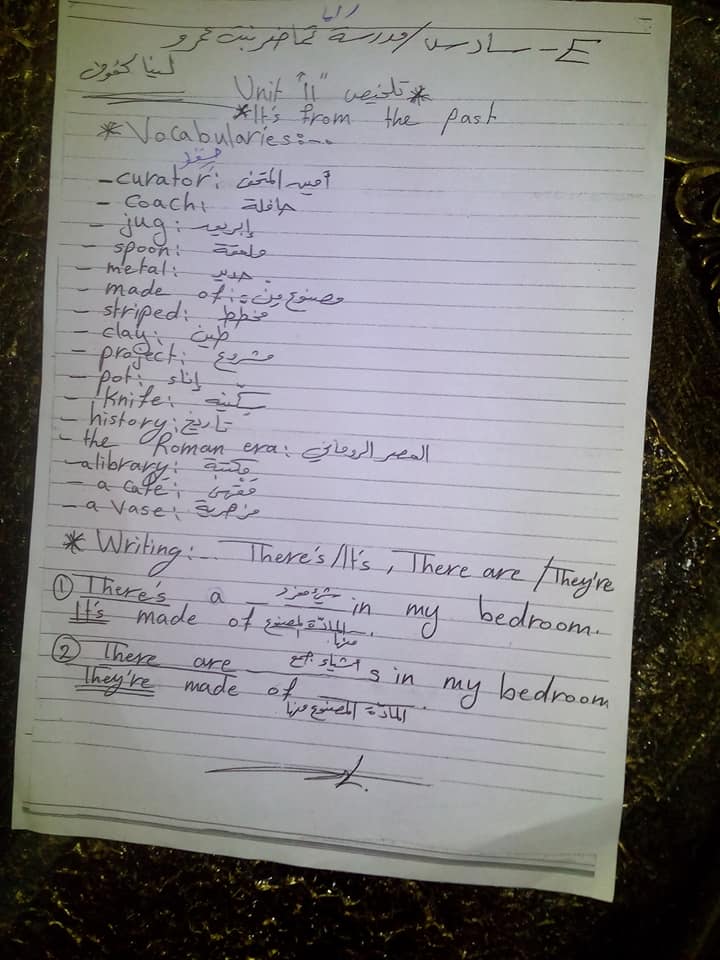 E - سادس / مدرسة تماضر بنت عمرو
لينا كفوف
* تلخيص Unit "11"
* It's from the past
* Vocabularies:-..
- curator: أمين المتحف
- coach: حافلة
- jug: إبريق
- spoon: ملعقة
- metal: حديد
- made of: مصنوع من
- striped: مخطط
- clay: طين
- project: مشروع
- pot: إناء
- knife: سكّينة
- history: تاريخ
- the Roman era: العصر الروماني
- a library: مكتبة
- a cafe: مقهى
- a vase: مزهرية
* Writing:.. There's/It's, There are/They're
① There's a شيء مفرد in my bedroom.
It's made of المادّة المصنوع منها.
② There are أشياء جمع s in my bedroom
They're made of .
المادّة المصنوع منها